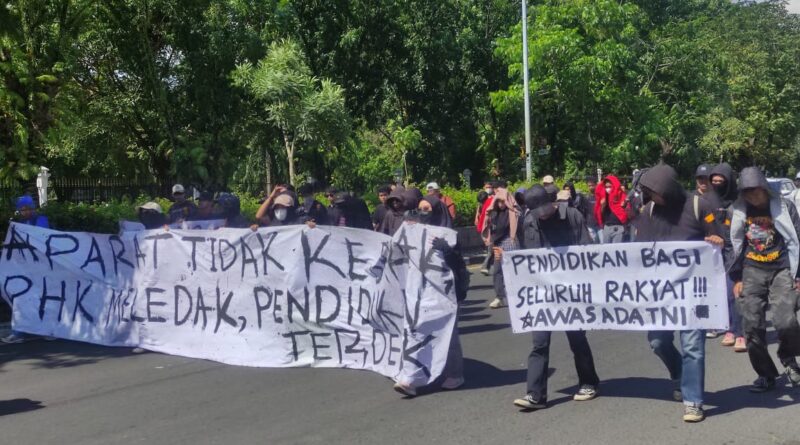 APARAT TIDAK
PHK MELEDAK,
PENDIDIKAN BAGI
SELURUH RAKYAT!!!
☆AWAS ADA TNI